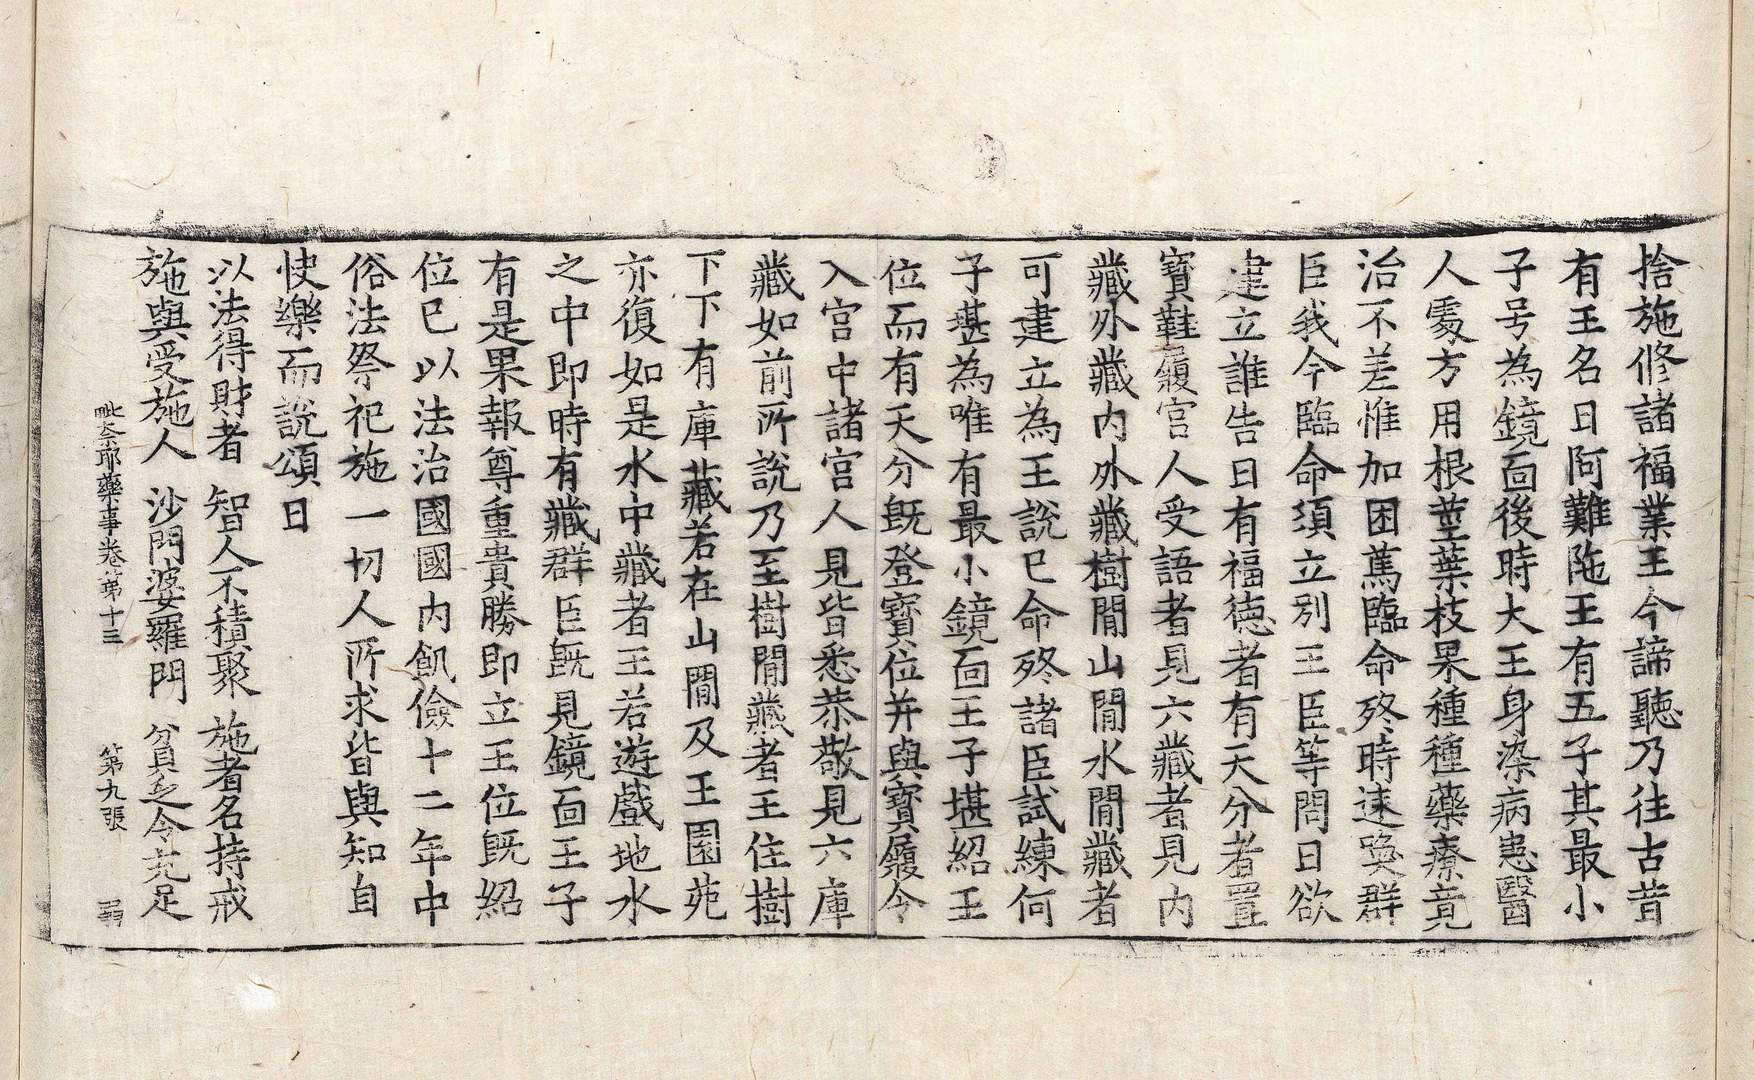 捨施修諸福業王今諦聽乃往古昔
有王名曰阿難陁王有五子其最小
子号為鏡面後時大王身染病患醫
人處方用根莖葉枝果種種藥療竟
治不差惟加困篤臨命終時速喚群
臣我今臨命須立別王臣等問曰欲
建立誰告曰有福德者有天分者置
寶鞋履宮人受語者見六藏者見內
藏外藏內外藏樹閒山閒水閒藏者
可建立為王說已命終諸臣試練何
子堪為唯有最小鏡面王子堪紹王
位而有天分旣登寶位并與寶履令
入宮中諸宮人見皆悉恭敬見六庫
藏如前所說乃至樹閒藏者王住樹
下下有庫藏若在山閒及王園苑
亦復如是水中藏者王若遊戲地水
之中即時有藏群臣旣見鏡面王子
有是果報尊重貴勝即立王位旣紹
位已以法治國國內飢儉十二年中
俗法祭祀施一切人所求皆與知自
快樂而說頌曰
以法得財者　智人不積聚　施者名持戒
施與受施人　沙門婆羅門　貧乏令充足
毗奈耶藥事卷第十三　第九張